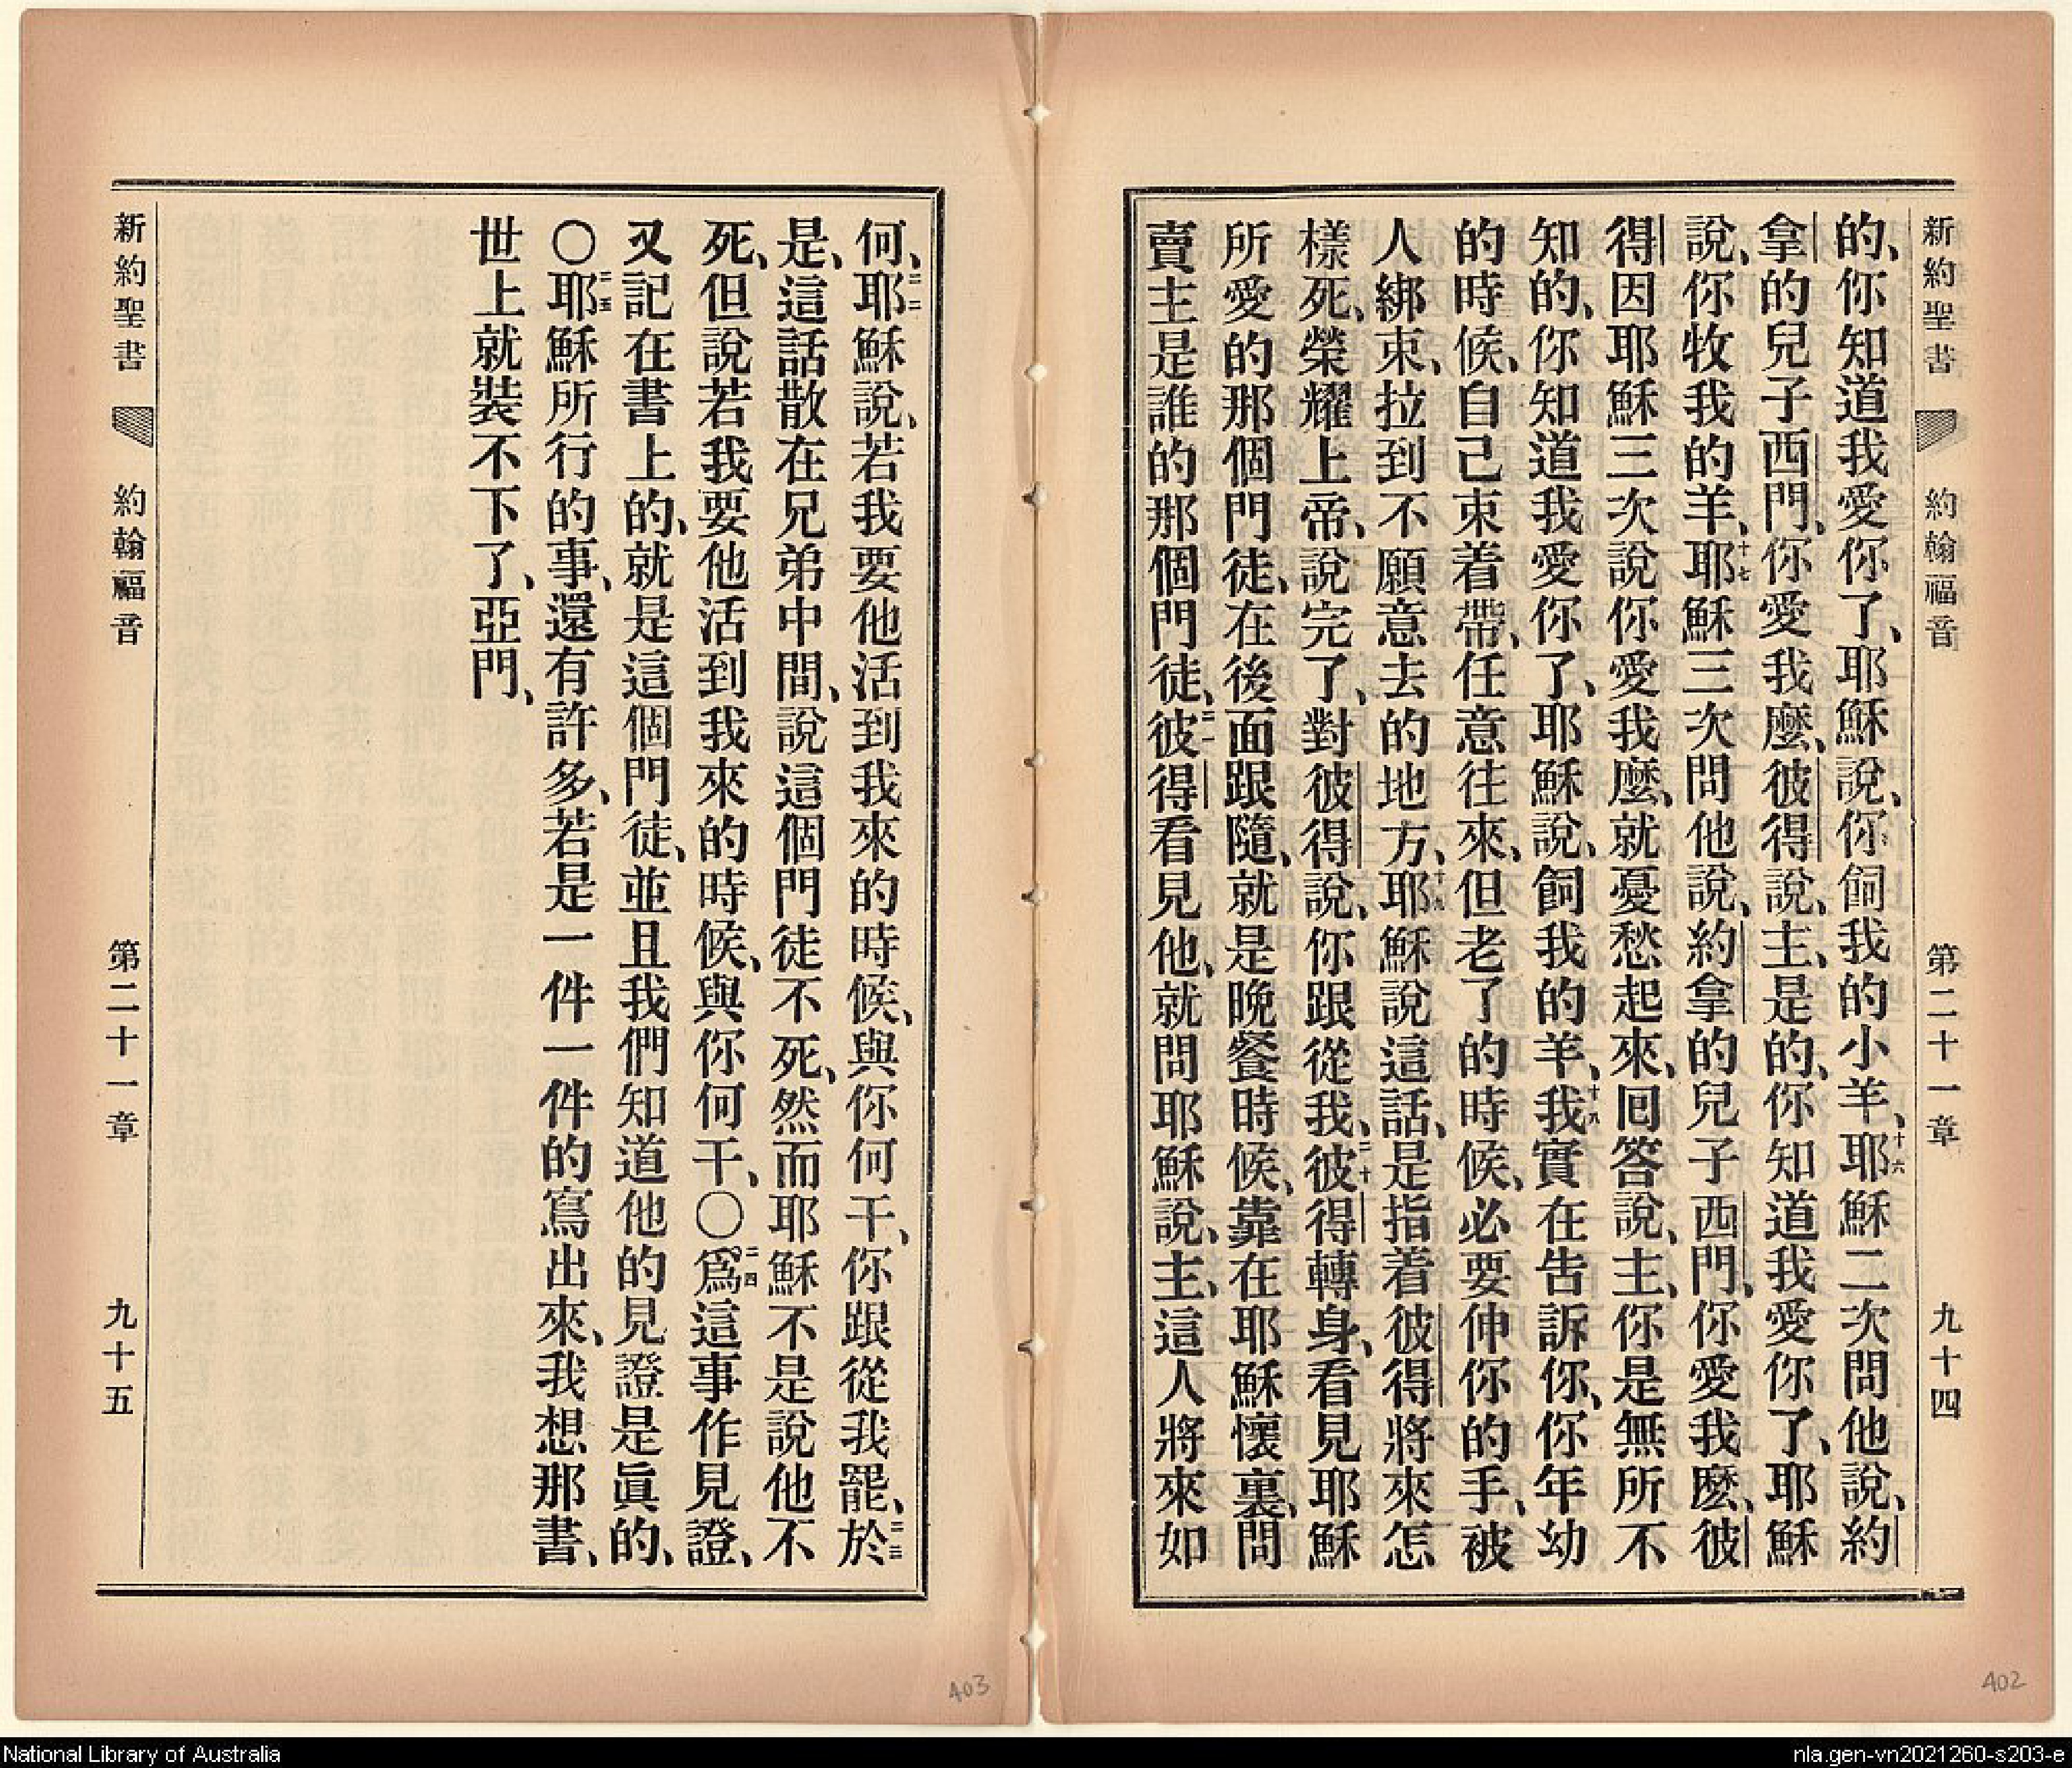 新約聖書 約翰福音 第二十一章 九十四
的、你知道我愛你了、耶穌說、你飼我的小羊、十六耶穌二次問他說、約
拿的兒子西門、你愛我麼、彼得說、主、是的、你知道我愛你了、耶穌
說、你牧我的羊、十七耶穌三次問他說、約拿的兒子西門、你愛我麼、彼
得因耶穌三次說你愛我麼、就憂愁起來、囘答說、主、你是無所不
知的、你知道我愛你了、耶穌說、飼我的羊、十八我實在告訴你、你年幼
的時候、自己束着帶、任意往來、但老了的時候、必要伸你的手、被
人綁束、拉到不願意去的地方、十九耶穌說這話、是指着彼得將來怎
樣死、榮耀上帝、說完了、對彼得說、你跟從我、二十彼得轉身、看見耶穌
所愛的那個門徒、在後面跟隨、就是晚餐時候、靠在耶穌懷裏、問
賣主是誰的那個門徒、二一彼得看見他、就問耶穌說、主、這人將來如
何、二二耶穌說、若我要他活到我來的時候、與你何干、你跟從我罷、二三於
是、這話散在兄弟中間、說這個門徒不死、然而耶穌不是說他不
死、但說若我要他活到我來的時候、與你何干、○二四爲這事作見證、
又記在書上的、就是這個門徒、並且我們知道他的見證是眞的、
○二五耶穌所行的事、還有許多、若是一件一件的寫出來、我想那書、
世上就裝不下了、亞門、
新約聖書 約翰福音 第二十一章 九十五
403
402
National Library of Australia
nla.gen-vn2021260-s203-e